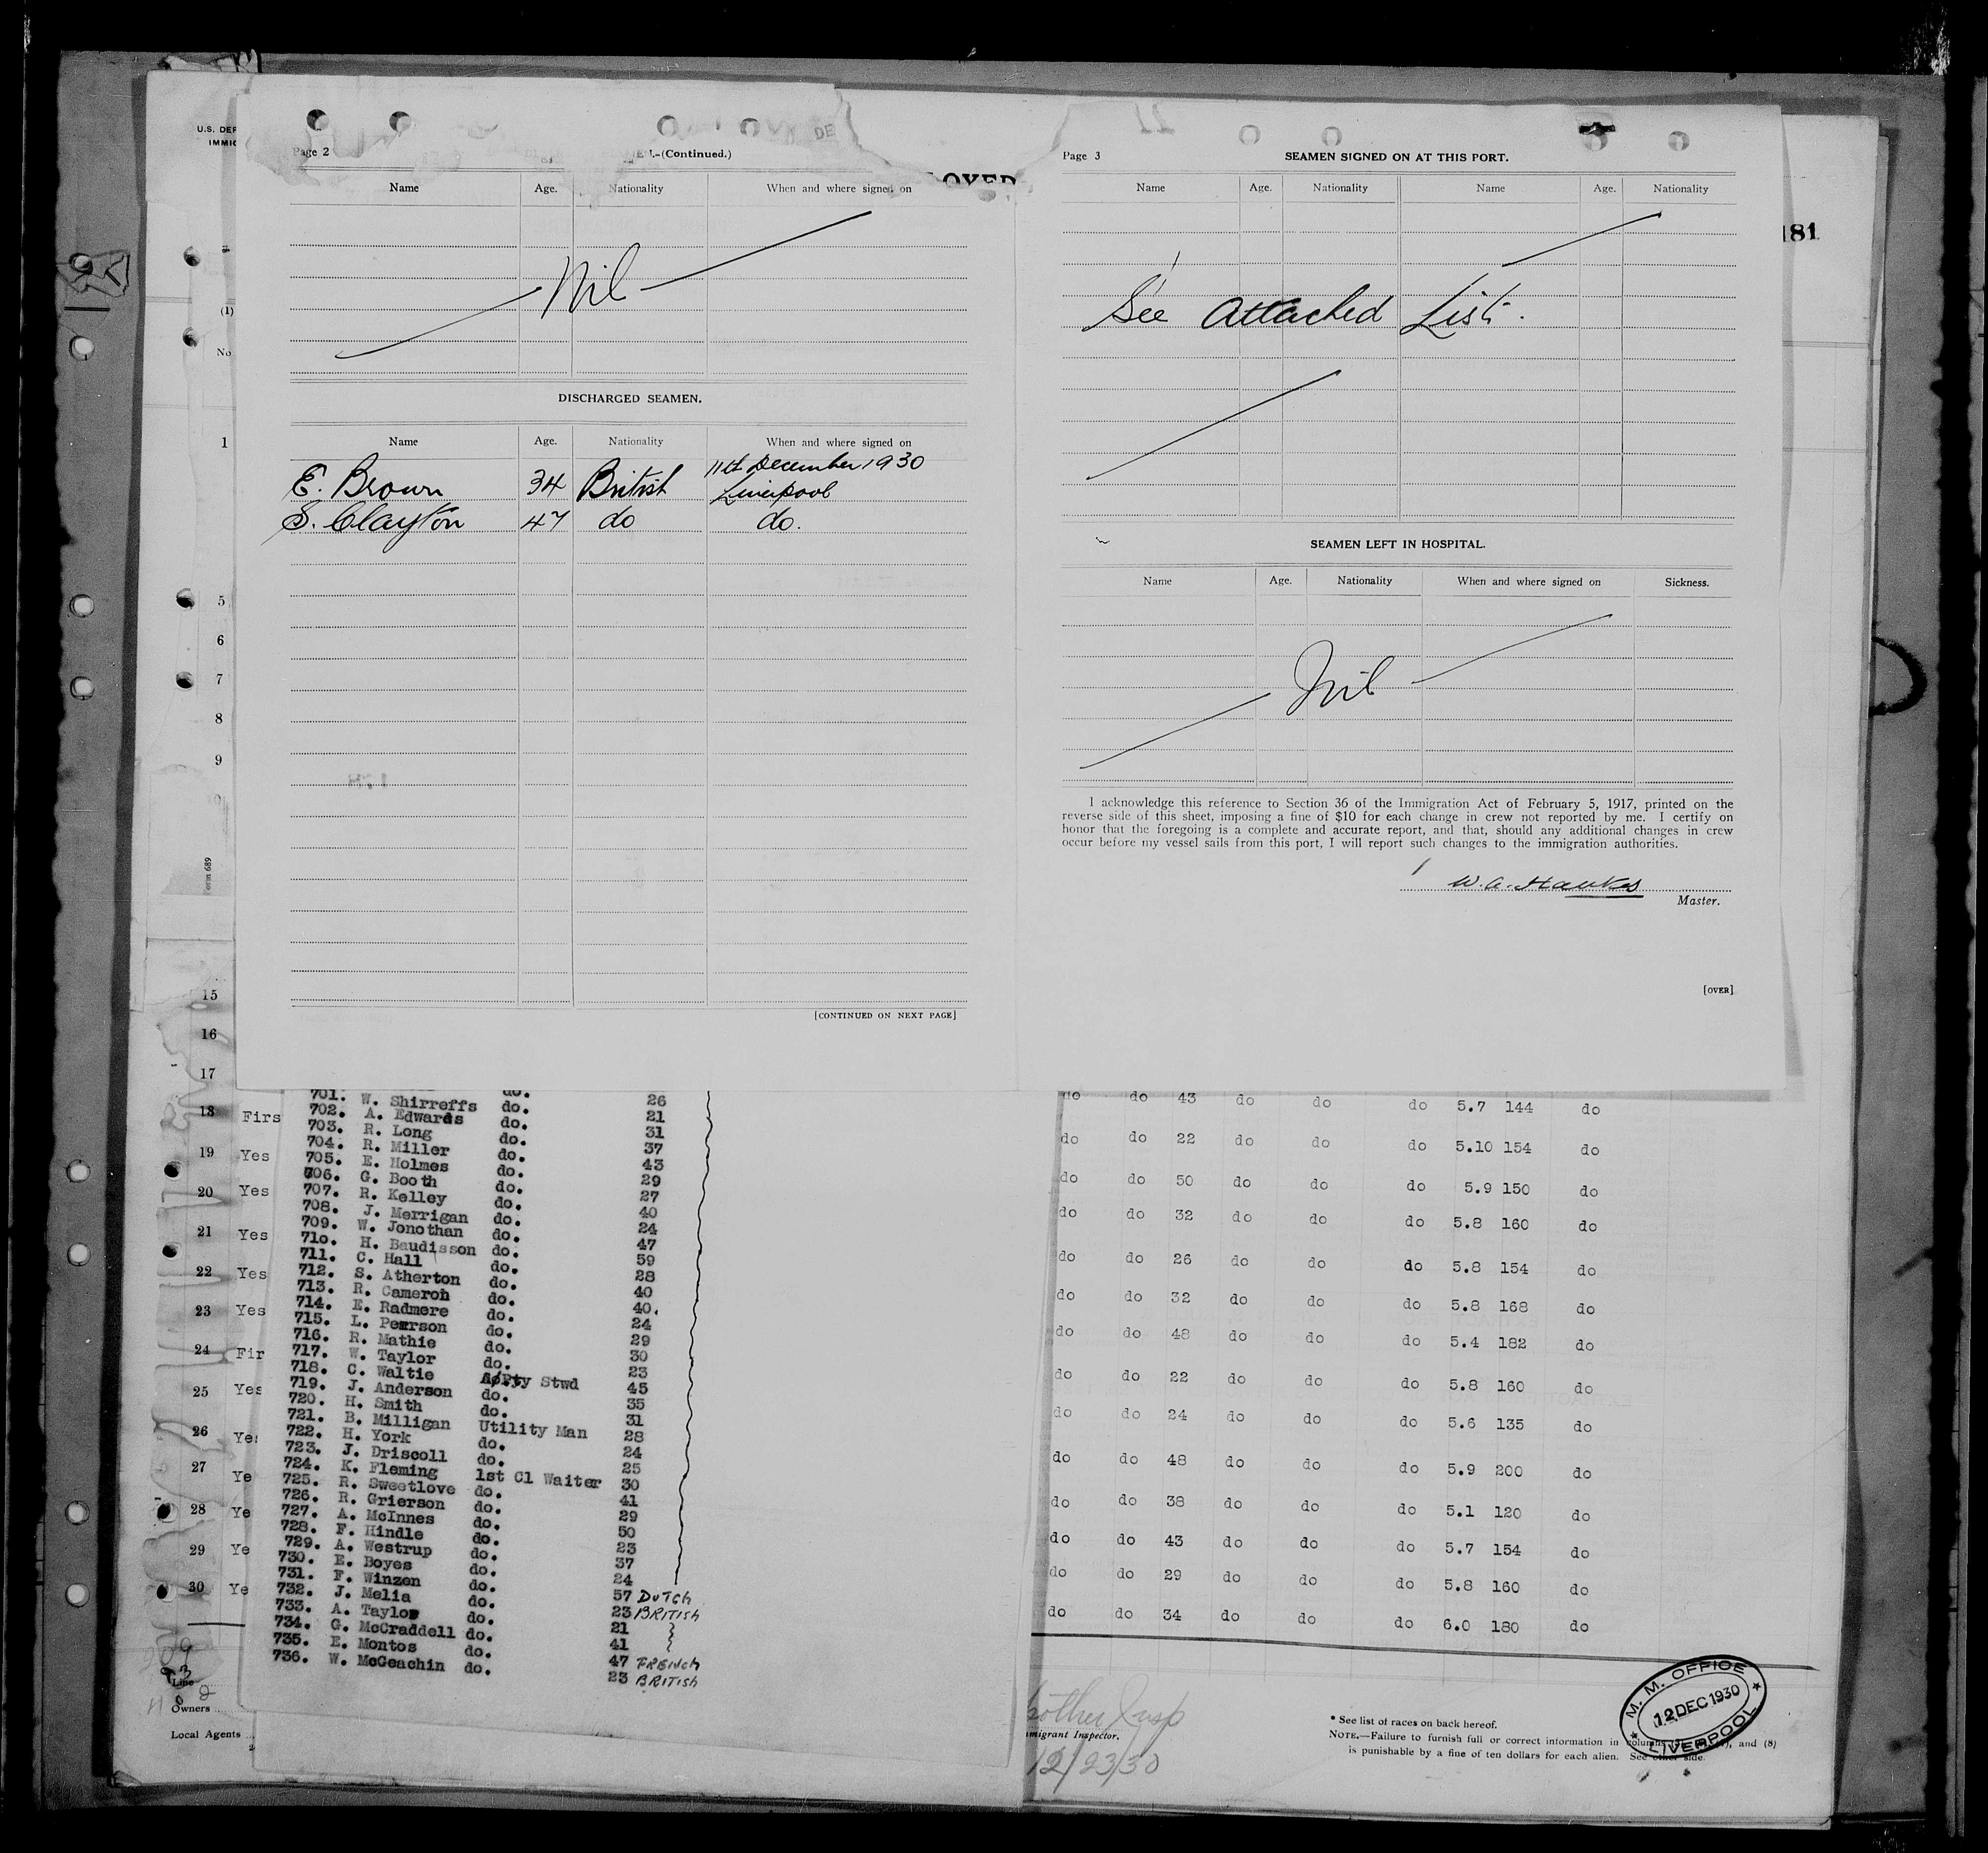 U.S. DEP
IMMIG
Page 2
.-(Continued.)
OYED
Name Age. Nationality When and where signed on
Nil
DISCHARGED SEAMEN.
Name Age. Nationality When and where signed on
11th December 1930
E. Brown 34 British Liverpool
S. Clayton 47 do do.
[CONTINUED ON NEXT PAGE]
Page 3 SEAMEN SIGNED ON AT THIS PORT.
Name Age. Nationality Name Age. Nationality
See Attached List.
SEAMEN LEFT IN HOSPITAL.
Name Age. Nationality When and where signed on Sickness.
Nil
I acknowledge this reference to Section 36 of the Immigration Act of February 5, 1917, printed on the
reverse side of this sheet, imposing a fine of $10 for each change in crew not reported by me. I certify on
honor that the foregoing is a complete and accurate report, and that, should any additional changes in crew
occur before my vessel sails from this port, I will report such changes to the immigration authorities.
W. A. Hawkes
Master.
[OVER]
181
(1)
No
1
5
6
7
8
9
Form 689
15
16
17
18 Firs
19 Yes
20 Yes
21 Yes
22 Yes
23 Yes
24 Fir
25 Yes
26 Yes
27 Ye
28 Ye
29 Ye
30 Ye
do. 26
701. W. Shirreffs do. 21
702. A. Edwards do. 31
703. R. Long do. 37
704. R. Miller do. 43
705. E. Holmes do. 29
706. G. Booth do. 27
707. R. Kelley do. 40
708. J. Merrigan do. 24
709. W. Jonothan do. 47
710. H. Baudisson do. 59
711. C. Hall do. 28
712. S. Atherton do. 40
713. R. Cameron do. 40.
714. E. Radmere do. 24
715. L. Pearson do. 29
716. R. Mathie do. 30
717. W. Taylor do. 23
718. C. Waltie Pty Stwd 45
719. J. Anderson do. 35
720. H. Smith do. 31
721. B. Milligan Utility Man 28
722. H. York do. 24
723. J. Driscoll do. 25
724. K. Fleming 1st Cl Waiter 30
725. R. Sweetlove do. 41
726. R. Grierson do. 29
727. A. McInnes do. 50
728. F. Hindle do. 23
729. A. Westrup do. 37
730. E. Boyes do. 24
731. F. Winzen do. 57 DUTCH
732. J. Melia do. 23 BRITISH
733. A. Taylor do. 21
734. G. McCraddell do. 41
735. E. Montos do. 47 FRENCH
736. W. McGeachin do. 23 BRITISH
do do 43 do do do 5.7 144 do
do do 22 do do do 5.10 154 do
do do 50 do do do 5.9 150 do
do do 32 do do do 5.8 160 do
do do 26 do do do 5.8 154 do
do do 32 do do do 5.8 168 do
do do 48 do do do 5.4 182 do
do do 22 do do do 5.8 160 do
do do 24 do do do 5.6 135 do
do do 48 do do do 5.9 200 do
do do 38 do do do 5.1 120 do
do do 43 do do do 5.7 154 do
do do 29 do do do 5.8 160 do
do do 34 do do do 6.0 180 do
Line
Owners
Local Agents
Insp
mmigrant Inspector.
12/23/30
* See list of races on back hereof.
NOTE.—Failure to furnish full or correct information in columns , and (8)
is punishable by a fine of ten dollars for each alien. See other side.
M. M. OFFICE
12 DEC 1930
LIVERPOOL